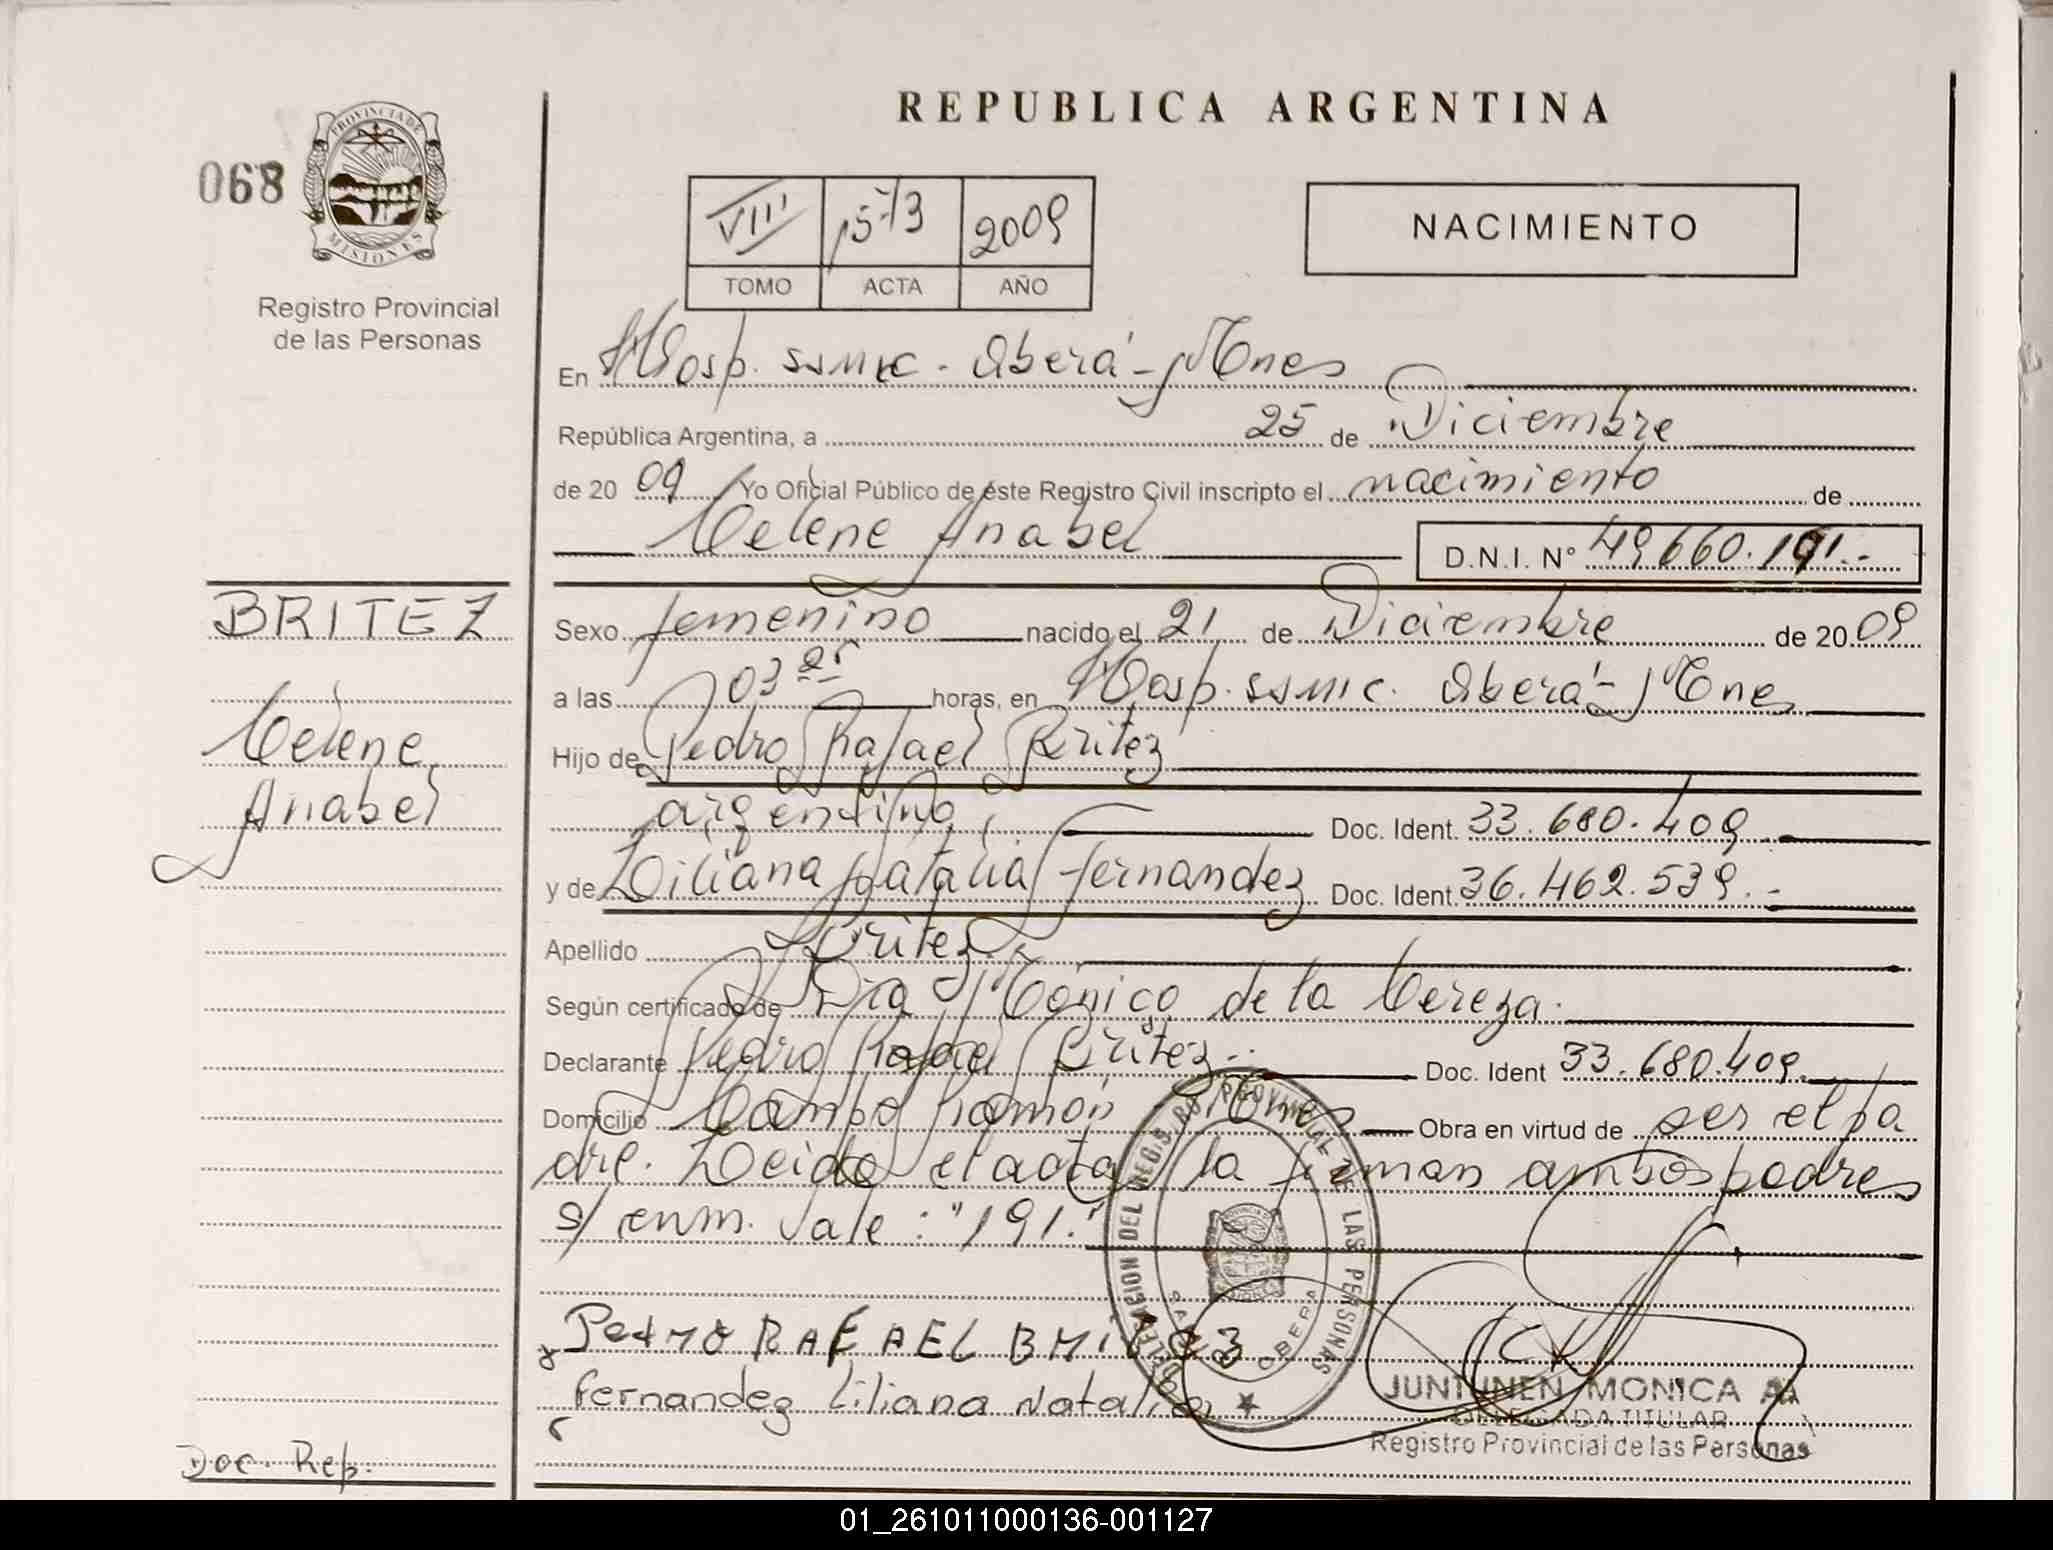 REPUBLICA ARGENTINA
068
PROVINCIA DE
MISIONES
Registro Provincial
de las Personas
VIII 1573 2009
TOMO ACTA AÑO
NACIMIENTO
En Hosp. SSMIC - Oberá - Mnes
República Argentina, a 25 de Diciembre
de 20 09 Yo Oficial Público de éste Registro Civil inscripto el nacimiento de
Celene Anabel
D.N.I. Nº 49.660.191.-
BRITEZ
Celene
Anabel
Sexo femenino nacido el 21 de Diciembre de 20 09
a las 03 25 horas, en Hosp. SSMIC. Oberá - Mnes
Hijo de Pedro Rafael Britez
argentino, Doc. Ident. 33.680.409
y de Liliana Natalia Fernandez Doc. Ident. 36.462.539.-
Apellido Britez
Según certificado de Dra Mónica de la Cereza.
Declarante Pedro Rafael Britez Doc. Ident 33.680.409.
Domicilio Campo Ramón Mnes Obra en virtud de ser el pa
dre. Leida el acta la firman ambos padres
s/ enm. Vale: "191."
Pedro RAFAEL BRITEZ
Fernandez Liliana Natalia
DELEGACION DEL REG. PROVINCIAL DE LAS PERSONAS
OBERA
JUNTUNEN MONICA A
DELEGADA TITULAR
Registro Provincial de las Personas
Doc. Rep.
01_261011000136-001127